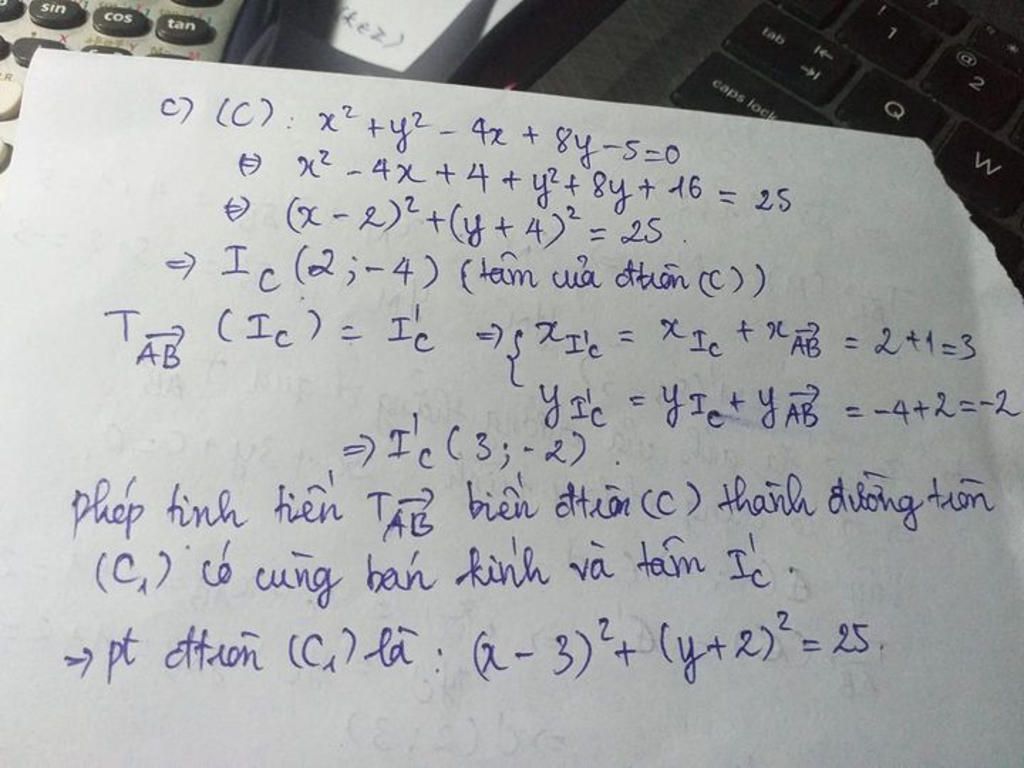 sin cos tan
tab
caps lock
! 1
@ 2
Q
W
c) (C): x² + y² - 4x + 8y - 5 = 0
⇔ x² - 4x + 4 + y² + 8y + 16 = 25
⇔ (x - 2)² + (y + 4)² = 25.
⇒ I_C (2; -4) (tâm của đtròn (C))
T_{\overrightarrow{AB}} (I_C) = I'_C ⇒ { x_{I'_C} = x_{I_C} + x_{\overrightarrow{AB}} = 2+1=3
y_{I'_C} = y_{I_C} + y_{\overrightarrow{AB}} = -4+2=-2
⇒ I'_C (3; -2).
phép tịnh tiến T_{\overrightarrow{AB}} biến đtròn (C) thành đường tròn
(C₁) có cùng bán kính và tâm I'_C.
⇒ pt đtròn (C₁) là: (x - 3)² + (y + 2)² = 25.